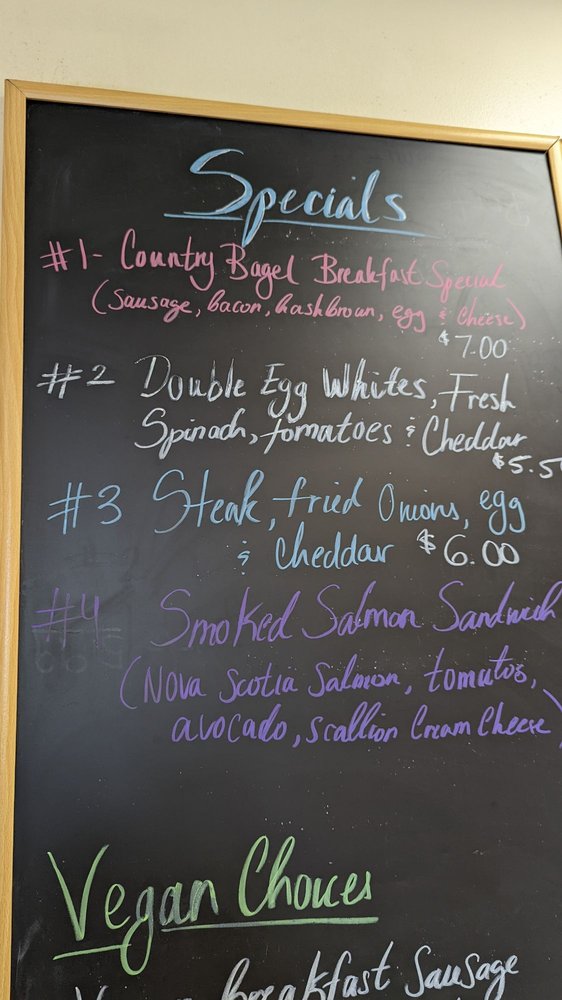 Specials
#1- Country Bagel Breakfast Special
(Sausage, bacon, hashbrown, egg & cheese)
$7.00
#2 Double Egg Whites, Fresh
Spinach, tomatoes & Cheddar
$5.5
#3 Steak, fried Onions, egg
& Cheddar $6.00
#4 Smoked Salmon Sandwich
(Nova Scotia Salmon, tomatos,
avocado, scallion Cream Cheese)
Vegan Choices
Vegan breakfast Sausage